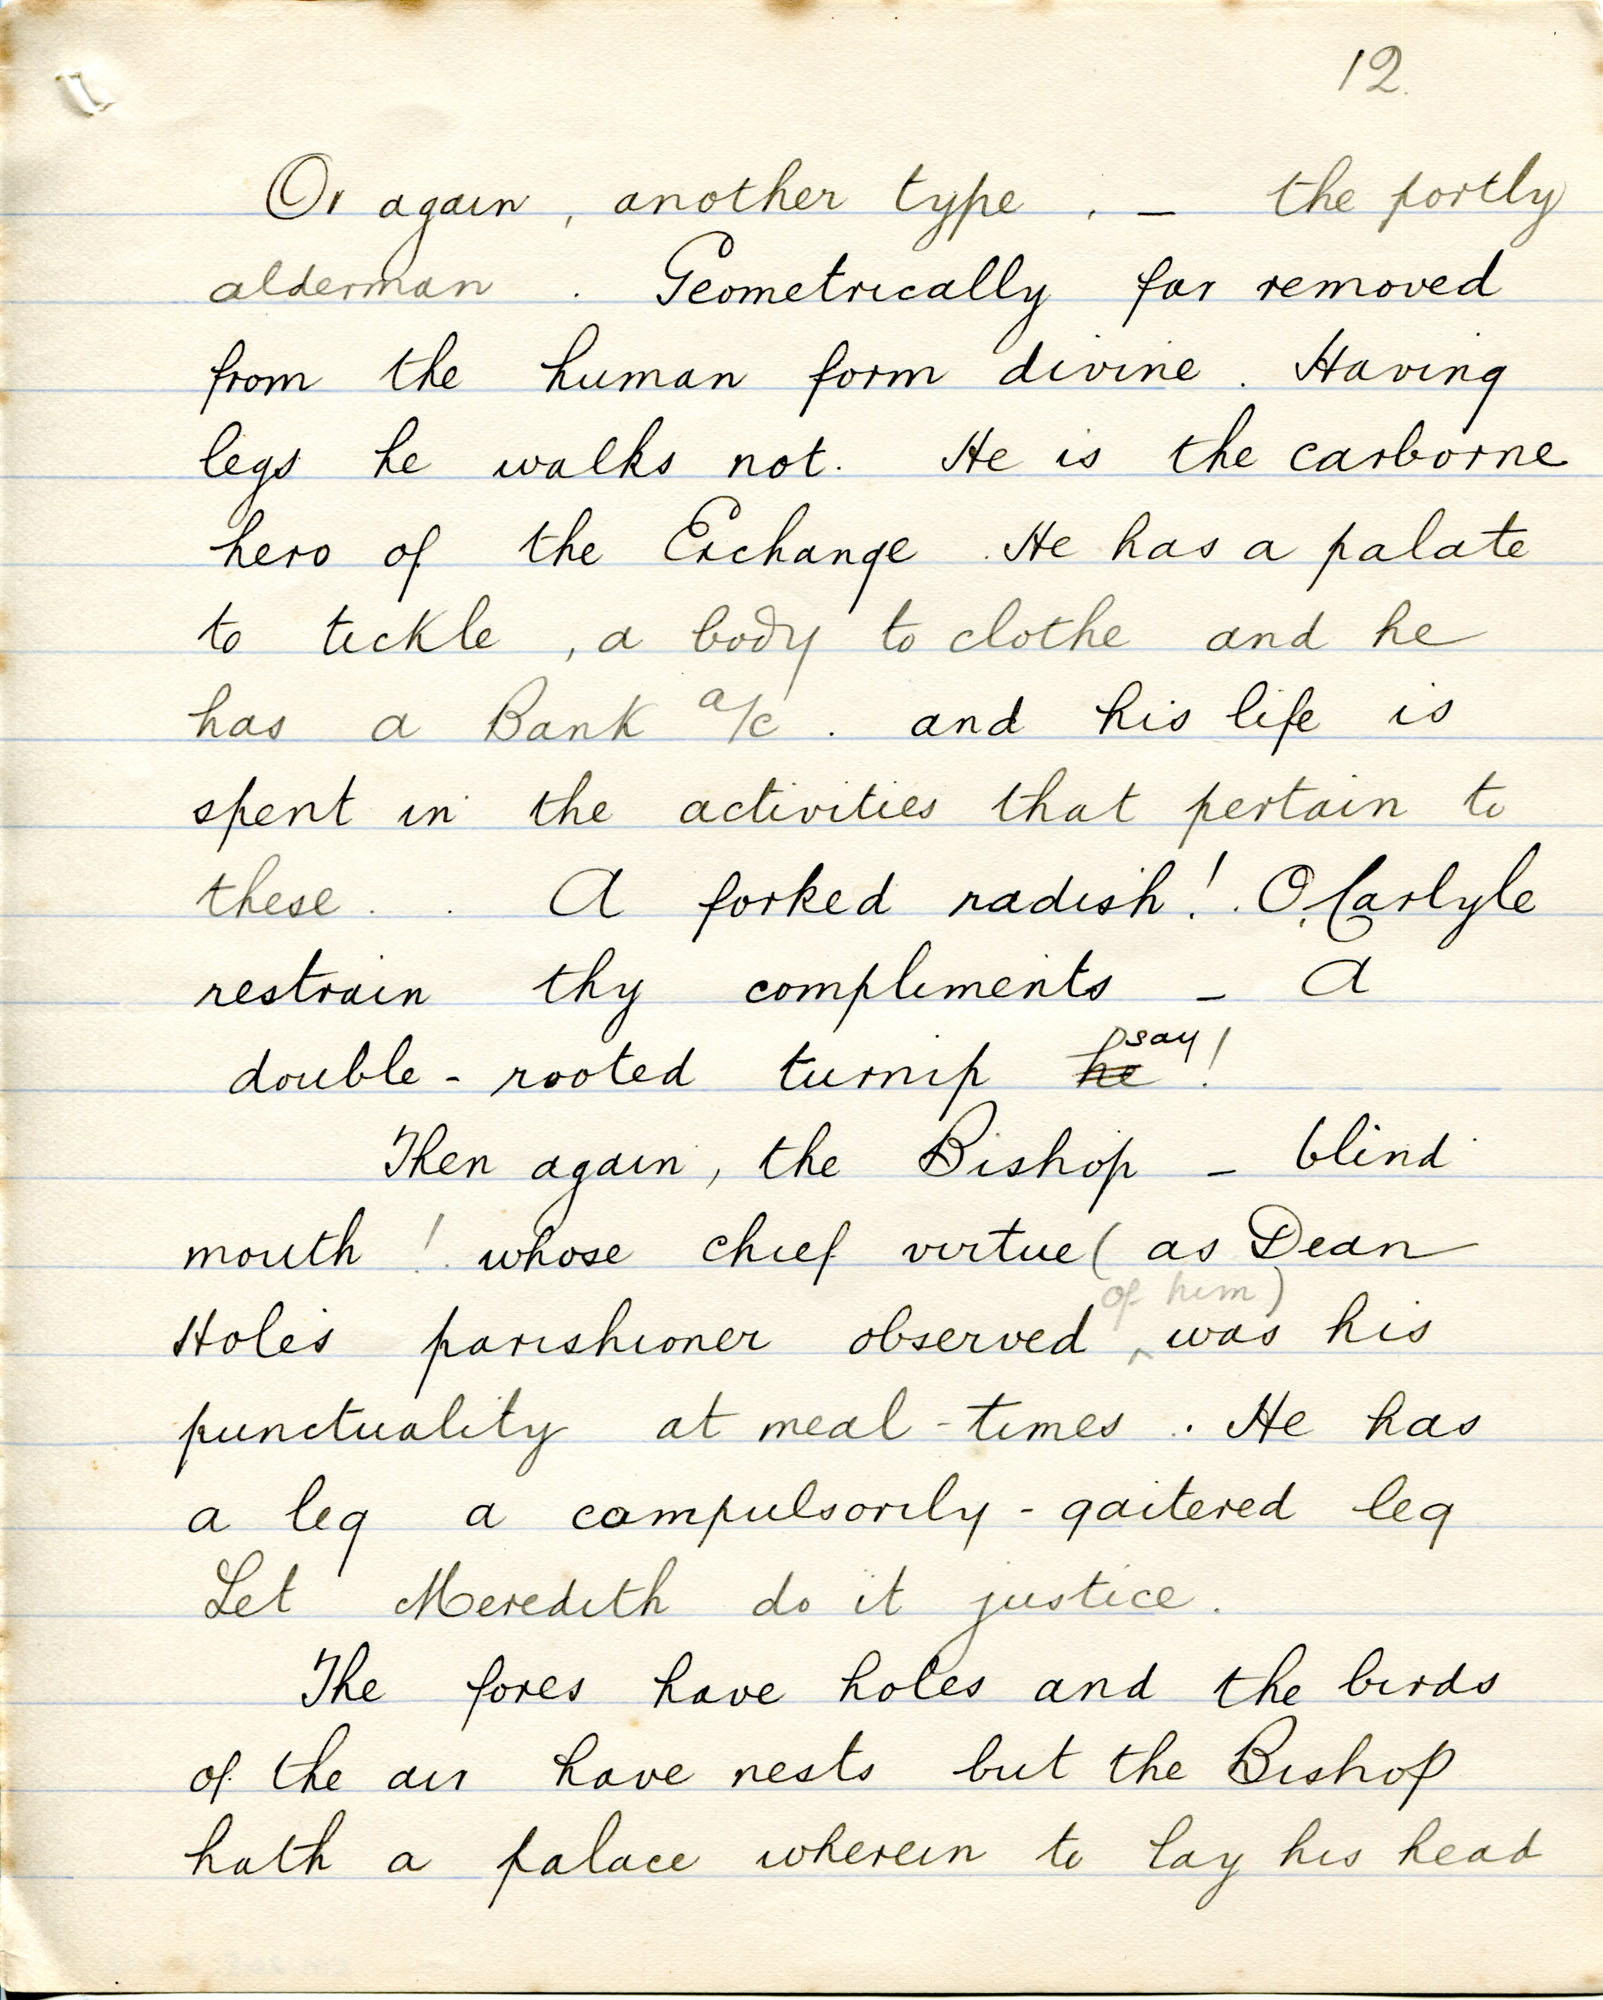 12.
Or again, another type, - the portly
alderman. Geometrically far removed
from the human form divine. Having
legs he walks not. He is the carborne
hero of the Exchange. He has a palate
to tickle, a body to clothe and he
has a Bank a/c. and his life is
spent in the activities that pertain to
these. . A forked radish! . O, Carlyle
restrain thy compliments - A
double-rooted turnip say!
he!
Then again, the Bishop - blind
mouth! whose chief virtue (as Dean
of him)
Hole's parishioner observed ‸ was his
punctuality at meal-times. He has
a leg a compulsorily-gaitered leg
Let Meredith do it justice.
The foxes have holes and the birds
of the air have nests but the Bishop
hath a palace wherein to lay his head